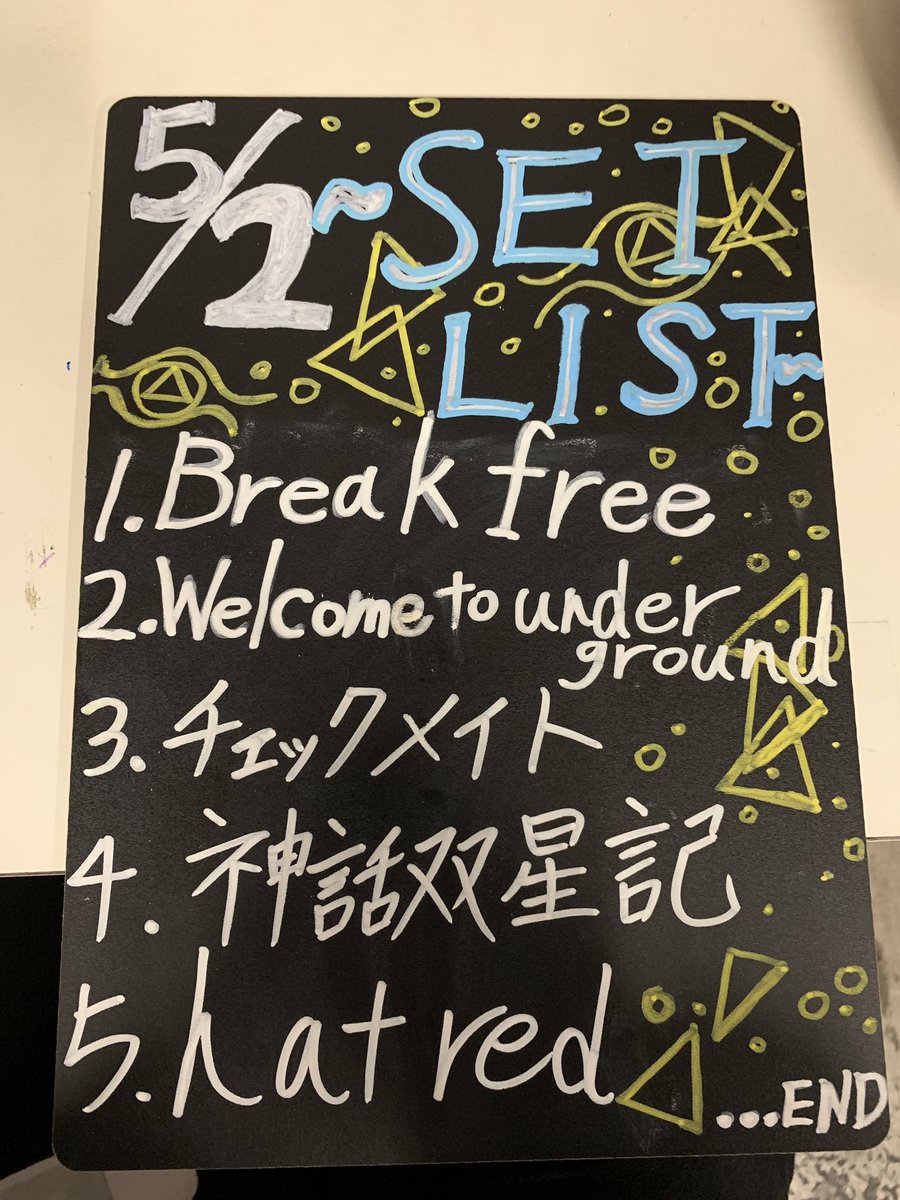 5/2 ~SET
LIST~
1. Break free
2. Welcome to under
ground
3. チェックメイト
4. 神話双星記
5. hatred
...END